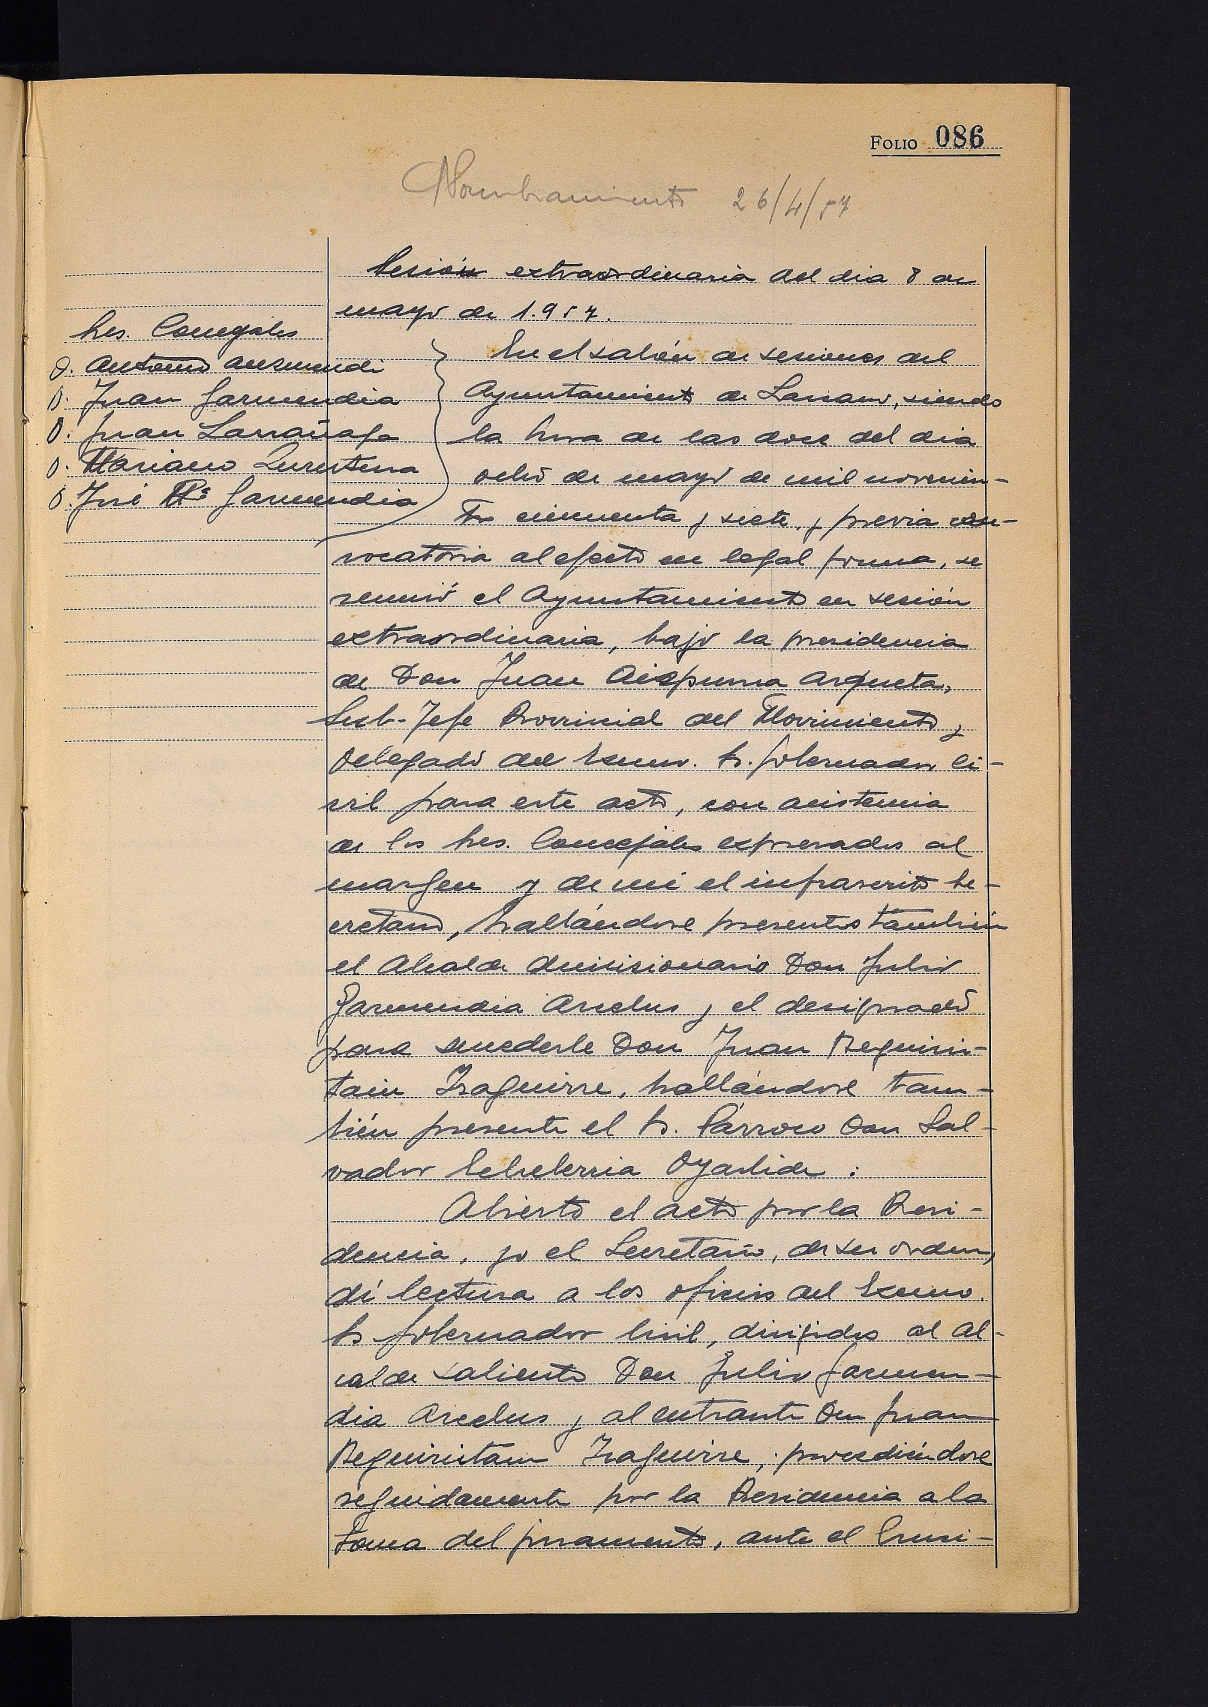 FOLIO 086
Nombramiento 26/4/57
Sesión extraordinaria del dia 8 de
mayo de 1.957.
Sres. Concejales
D. Antonio Auzmendi
D. Juan Garmendia
D. Juan Larrañaga
D. Mariano
D. José Mª Garmendia
En el salón de sesiones del
Ayuntamiento de Larraul, siendo
la hora de las doce del dia
ocho de mayo de mil novecien-
tos cincuenta y siete, y previa con-
vocatoria al efecto en legal forma, se
reunió el Ayuntamiento en sesión
extraordinaria, bajo la presidencia
de Don Juan Aizpurua Arqueta,
Sub-Jefe Provincial del Movimiento y
Delegado del Excmo. Sr. Gobernador Ci-
vil para este acto, con asistencia
de los Sres. Concejales expresados al
margen y de mi el infrascrito Se-
cretario, hallándose presentes también
el Alcalde dimisionario Don Julio
Garmendia Arcelus y el designado
para sucederle Don Juan Beguiris-
tain Izaguirre, hallándose tam-
bién presente el Sr. Párroco Don Sal-
vador Echeberria Oyarbide :
Abierto el acto por la Presi-
dencia, yo el Secretario, de su orden,
dí lectura a los oficios del Excmo.
Sr Gobernador Civil, dirigidos al Al-
calde saliente Don Julio Garmen-
dia Arcelus y al entrante Don Juan
Beguiristain Izaguirre, procediéndose
seguidamente por la Presidencia a la
toma del juramento, ante el Cruci-